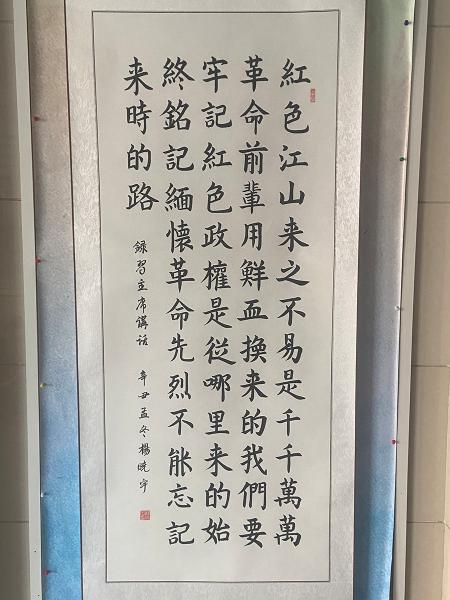 紅色江山来之不易是千千萬萬
革命前輩用鮮血換来的我們要
牢記紅色政權是從哪里来的始
終銘記緬懷革命先烈不能忘記
来時的路
録習主席講話
辛丑孟冬楊晓宇